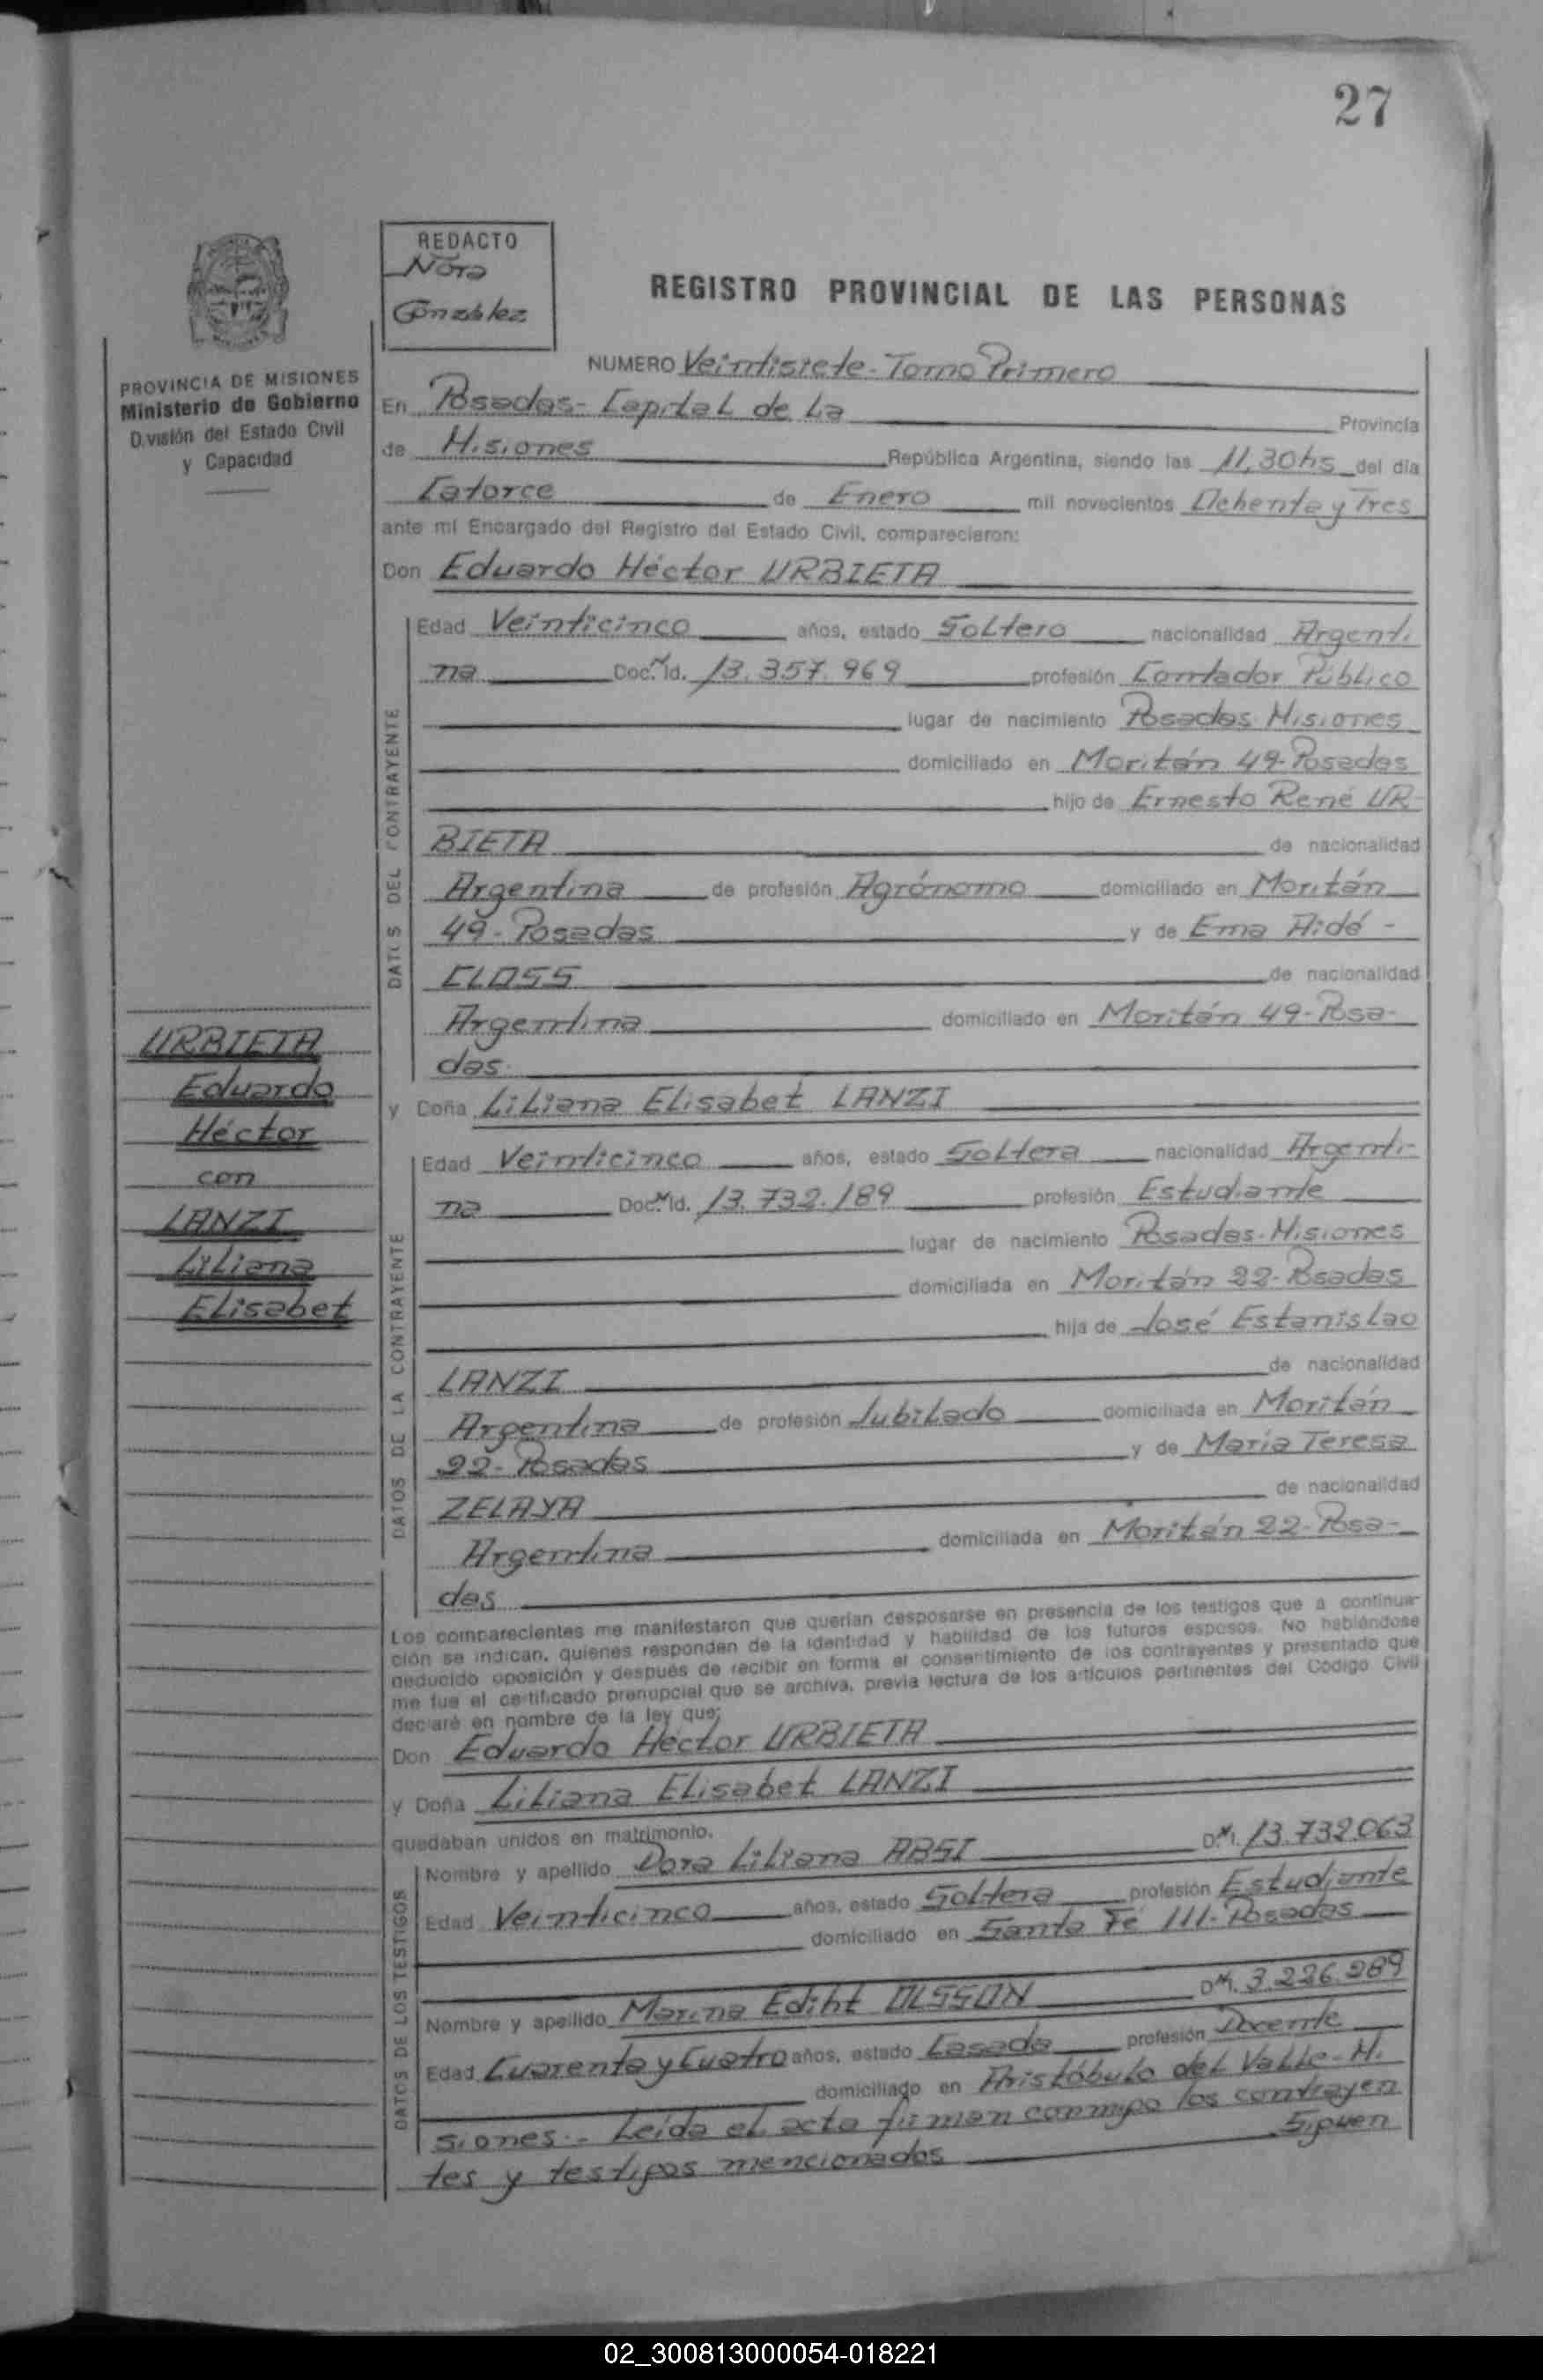 27
REDACTO
Nora
González
REGISTRO PROVINCIAL DE LAS PERSONAS
PROVINCIA DE MISIONES
Ministerio de Gobierno
División del Estado Civil
y Capacidad
NUMERO Veintisiete-Tomo Primero
En Posadas-Capital de La Provincia
de Misiones República Argentina, siendo las 11,30hs del día
Catorce de Enero mil novecientos Ochenta y Tres
ante mí Encargado del Registro del Estado Civil, comparecieron:
Don Eduardo Héctor URBIETA
DATOS DEL CONTRAYENTE
Edad Veinticinco años, estado Soltero nacionalidad Argenti-
na Doc. Id. 13.357.969 profesión Contador Público
lugar de nacimiento Posadas-Misiones
domiciliado en Moritán 49-Posadas
hijo de Ernesto René UR-
BIETA de nacionalidad
Argentina de profesión Agrónomo domiciliado en Moritán
49-Posadas y de Ema Aidé -
CLOSS de nacionalidad
Argentina domiciliado en Moritán 49-Posa-
das.
URBIETA
Eduardo
Héctor
con
LANZI
Liliana
Elisabet
y Doña Liliana Elisabet LANZI
DATOS DE LA CONTRAYENTE
Edad Veinticinco años, estado Soltera nacionalidad Argenti-
na Doc. Id. 13.732.189 profesión Estudiante
lugar de nacimiento Posadas-Misiones
domiciliada en Moritán 22-Posadas
hija de José Estanislao
LANZI de nacionalidad
Argentina de profesión Jubilado domiciliada en Moritán
22-Posadas y de María Teresa
ZELAYA de nacionalidad
Argentina domiciliada en Moritán 22-Posa-
das
Los comparecientes me manifestaron que querían desposarse en presencia de los testigos que a continua-
ción se indican, quienes responden de la identidad y habilidad de los futuros esposos. No habiéndose
deducido oposición y después de recibir en forma el consentimiento de los contrayentes y presentado que
me fue el certificado prenupcial que se archiva, previa lectura de los artículos pertinentes del Código Civil
declaré en nombre de la ley que:
Don Eduardo Héctor URBIETA
y Doña Liliana Elisabet LANZI
quedaban unidos en matrimonio.
DATOS DE LOS TESTIGOS
Nombre y apellido Dora Liliana ABSI D.N.I. 13.732.063
Edad Veinticinco años, estado Soltera profesión Estudiante
domiciliado en Santa Fé 111-Posadas
Nombre y apellido Marina Ediht OLSSON D.N.I. 3.226.289
Edad Cuarenta y Cuatro años, estado Casada profesión Docente
domiciliado en Aristóbulo del Valle-Mi
siones.- Leída el acta firman conmigo los contrayen
tes y testigos mencionados Siguen
02_300813000054-018221